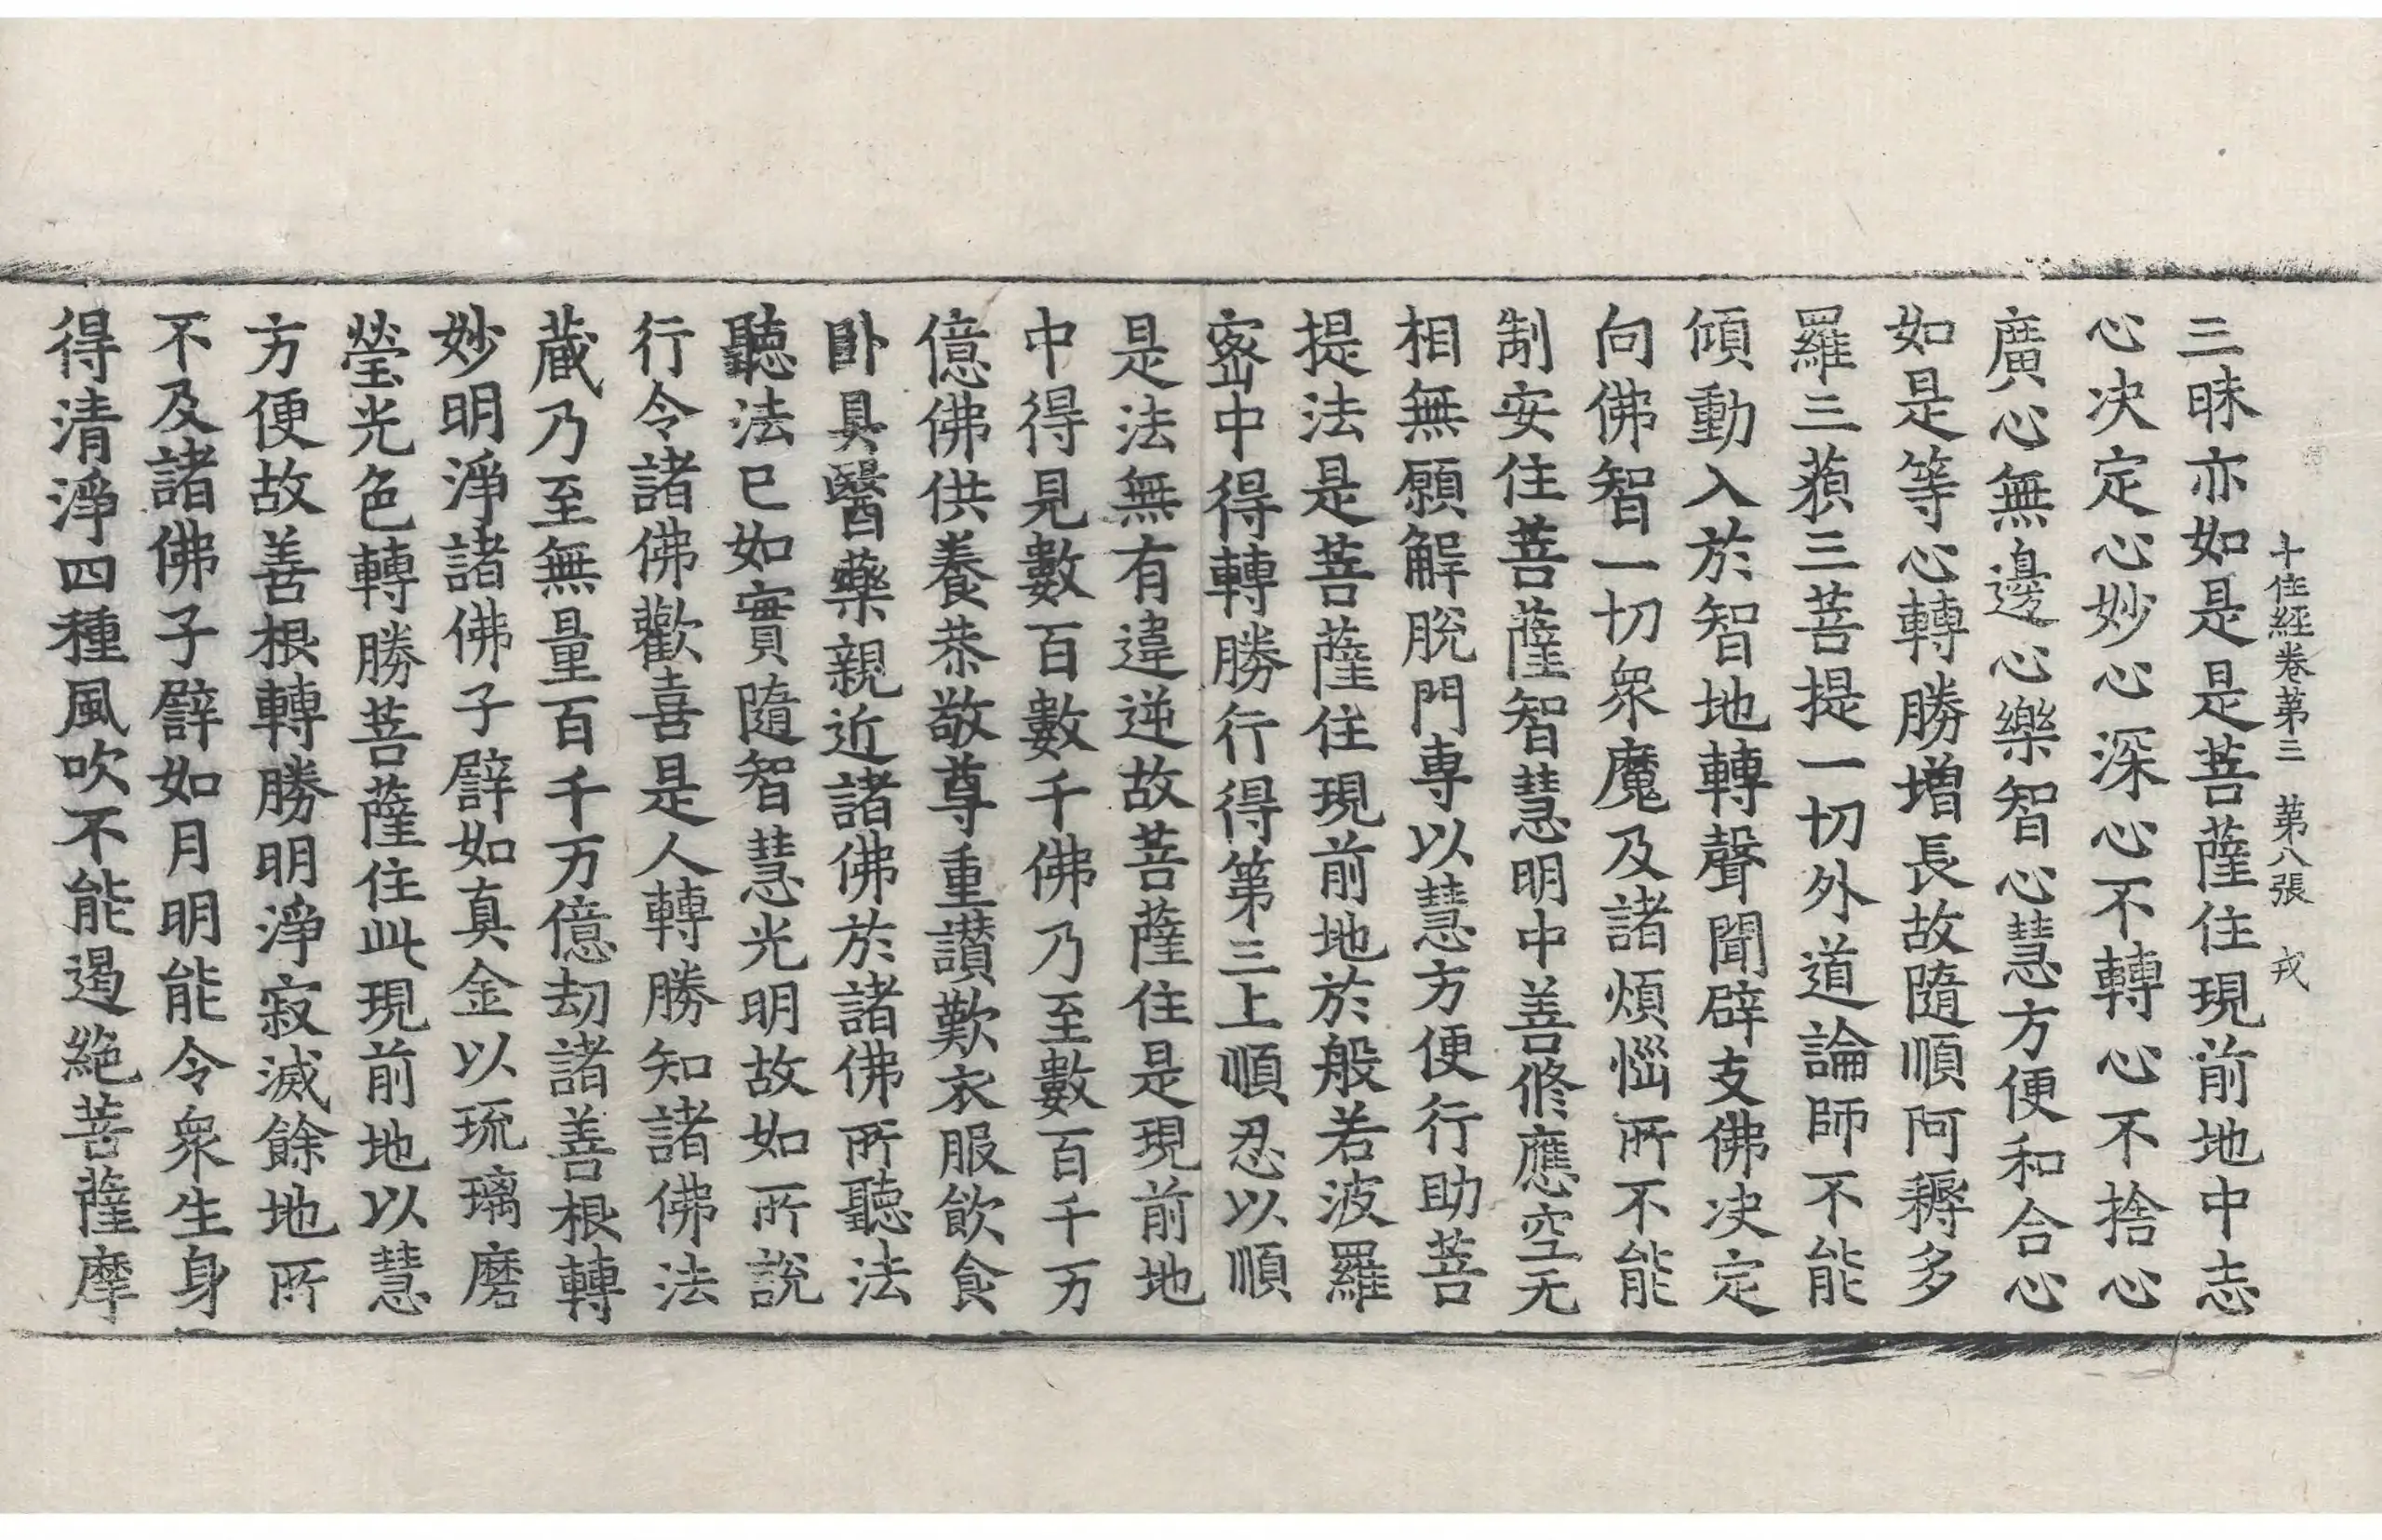 十住經卷第三 第八張 戎
三昧亦如是是菩薩住現前地中志
心决定心妙心深心不轉心不捨心
廣心無邊心樂智心慧方便和合心
如是等心轉勝增長故隨順阿耨多
羅三藐三菩提一切外道論師不能
傾動入於智地轉聲聞辟支佛决定
向佛智一切衆魔及諸煩惱所不能
制安住菩薩智慧明中善修應空无
相無願解脫門専以慧方便行助菩
提法是菩薩住現前地於般若波羅
宻中得轉勝行得第三上順忍以順
是法無有違逆故菩薩住是現前地
中得見數百數千佛乃至數百千万
億佛供養恭敬尊重讃歎衣服飲食
卧具醫藥親近諸佛於諸佛所聽法
聽法已如實隨智慧光明故如所說
行令諸佛歡喜是人轉勝知諸佛法
藏乃至無量百千万億劫諸善根轉
妙明淨諸佛子譬如真金以琉璃磨
瑩光色轉勝菩薩住此現前地以慧
方便故善根轉勝明淨寂滅餘地所
不及諸佛子譬如月明能令衆生身
得清淨四種風吹不能遏絶菩薩摩